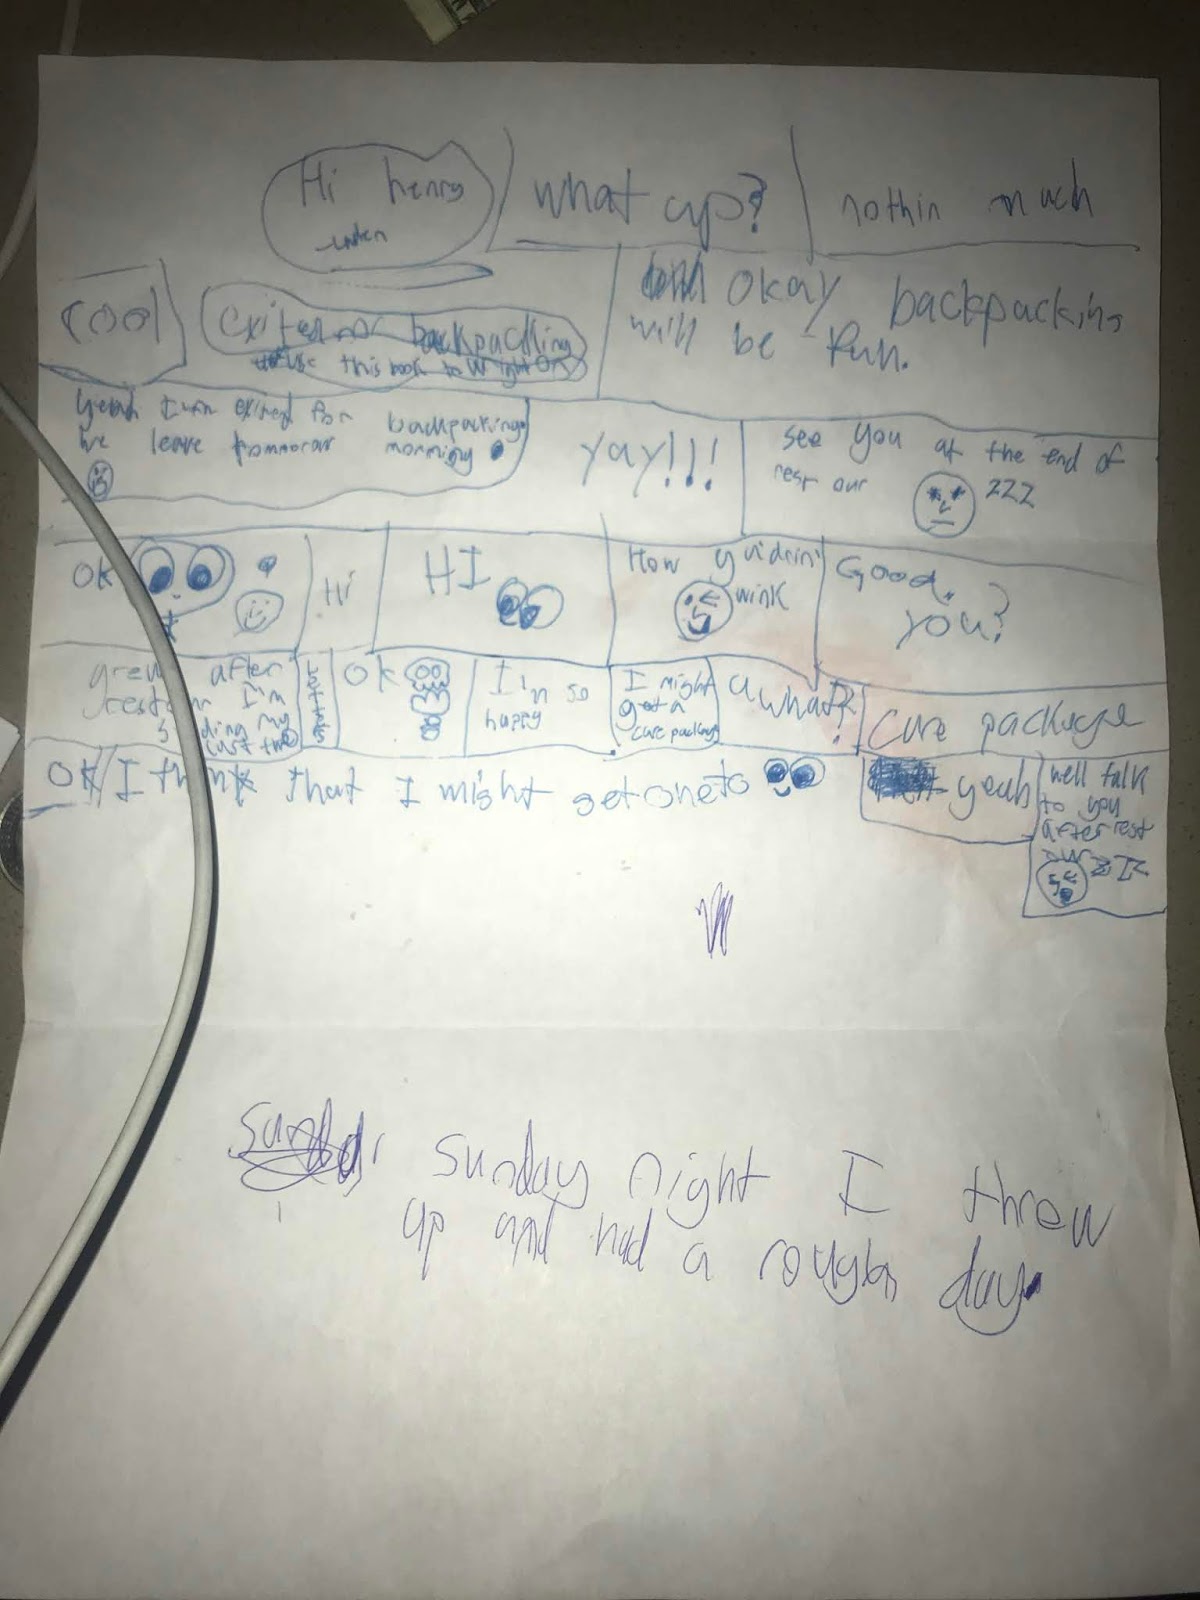 Hi henry
what up?
nothin much
cool
exited for backpacking
use this book to wright on
okay backpacking
will be fun.
yeah I'm exited for backpacking
we leave tommorow morning
yay!!!
see you at the end of
rest our
zzz
OK
Hi
HI
How y'a
wink
Good.
you?
great after
rest I'm
my
last two
letters
OK
I'm so
happy
I might
get a
care package
what?
care package
OK
I think that I might get one to
yeah
well talk
to you
after rest
our zzz
Sunday night I threw
up and had a rough day.